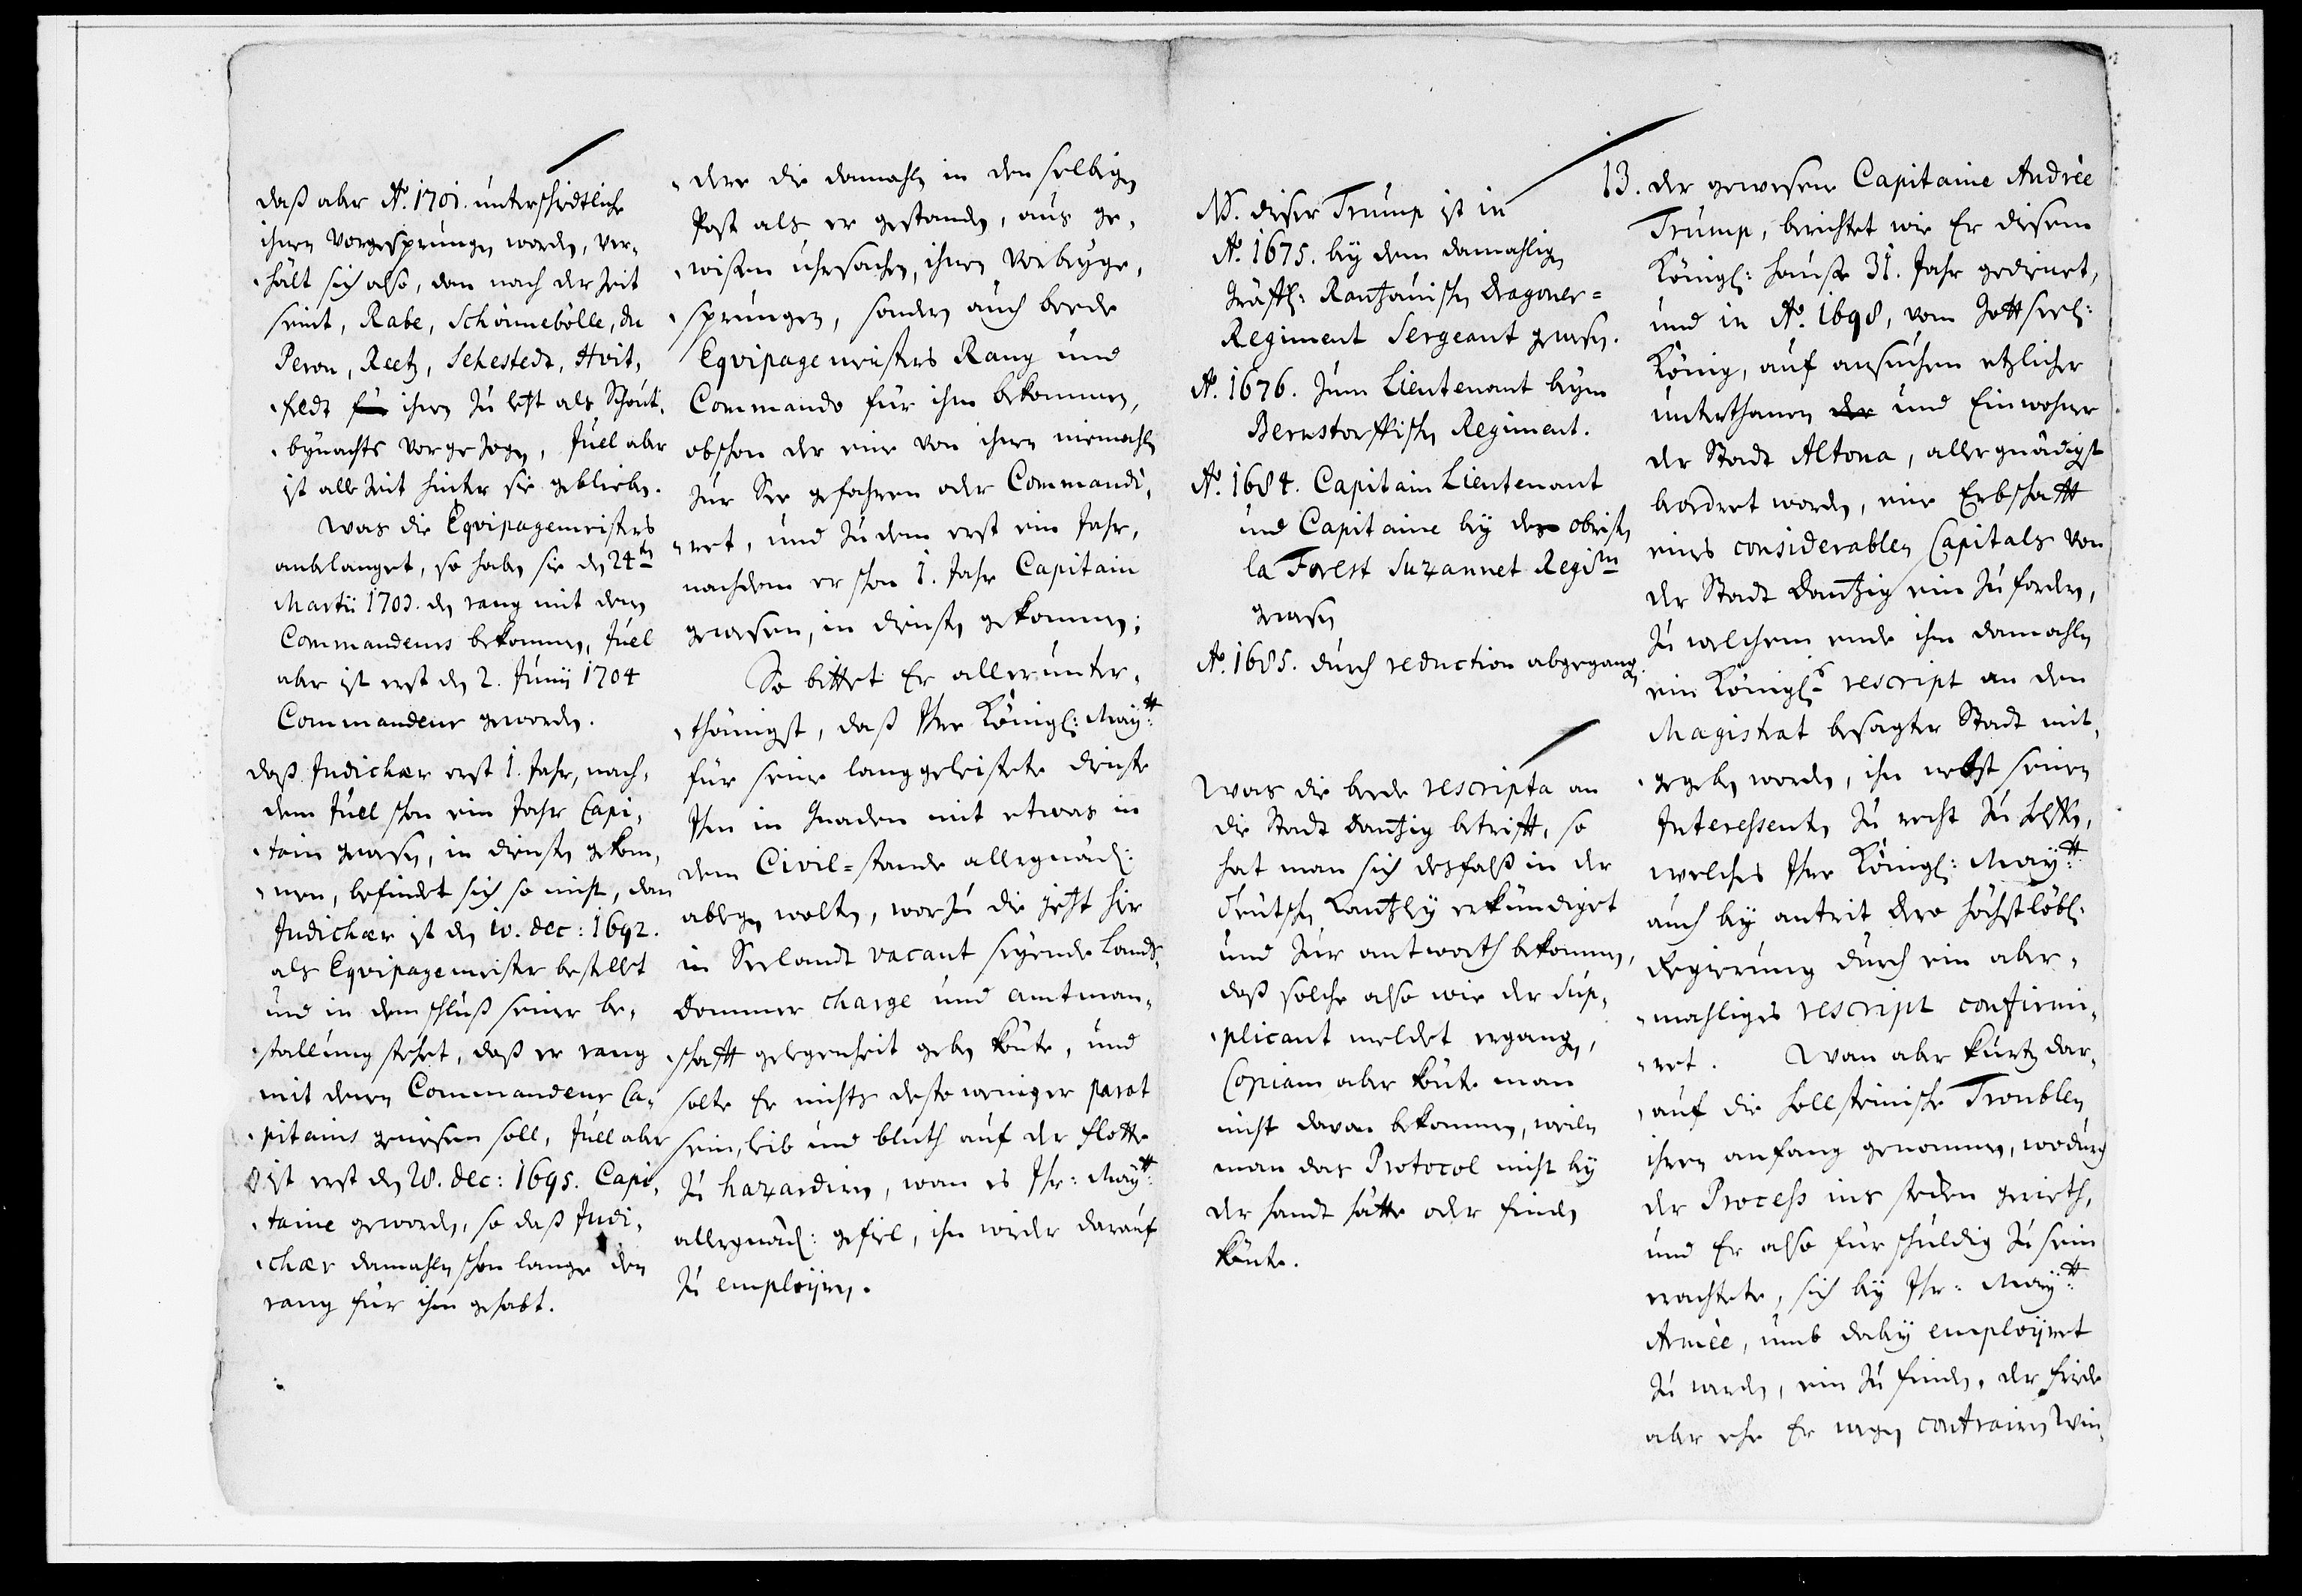 daß aber Ao. 1701. unterschiedtliche
ihnen vorgesprungen worden, ver-
hält sich also, dan nach der Zeit
seint, Rabe, Schönnebölle, du
Peron, Reetz, Sehestedt, Hvit,
feldt für ihnen zu letzt als Schout-
bynachts vorgezogen, Juel aber
ist alle Zeit hinter sie geblieben.
Was die Eqvipagemeisters
anbelanget, so haben sie den 24ten
Martii 1703. den rang mit denen
Commandeurs bekommen, Juel
aber ist erst den 2. Junii 1704
Commandeur geworden.
daß Judichær erst 1. Jahr, nach-
dem Juel schon ein Jahr Capi-
tain gewesen, in diensten gekom-
men, befindet sich so nicht, dan
Judichær ist den 10. dec: 1692.
als Eqvipagemeister bestellet
und in dem schluß seiner be-
stallung stehet, daß er rang
mit denen Commandeur Ca-
pitains geniesen soll, Juel aber
ist erst den 28. dec: 1695. Capi-
taine geworden, so daß Judi-
chær damahlen schon lange den
rang für ihm gehabt.
dere die damahlen in den selbigen
Post als er gestanden, aus ge-
wißen uhrsachen, ihnen vorbeyge-
sprungen, sondern auch beede
Eqvipagemeisters Rang und
Commando für ihm bekommen,
obschon der eine von ihnen niemahlen
zur See gefahren oder Commandi-
ret, und zu dem erst ein Jahr,
nachdem er schon 1. Jahr Capitain
gewesen, in diensten gekommen;
So bittet Er allerunter-
thänigst, daß Ihre Königl: Maytt:
für seine langgeleistete dienste
Ihm in Gnaden mit etwas in
dem Civil-stande allergnäd:
ablegen wolten, worzu die jetzt hir
in Seelandt vacant seyende Lands-
dommer charge und amtman-
schafft gelegenheit geben könte, und
solte Er nichts desto weniger parat
sein, leib und bluth auf der flotte
zu hazardiren, wan es Ihr: Maytt:
allergnäd: gefiel, ihn wieder darauf
zu employren.
NB. dieser Trump ist in
Ao. 1675. bey dem damahligen
Gräffl: Rantzauischen Dragoner-
Regiment Sergeant gewesen.
Ao. 1676. zum Lieutenant beym
Bernstorffischen Regiment.
Ao. 1684. Capitain Lieutenant
und Capitaine bey des obristen
la Forest Suzannet Regim
gewesen
Ao. 1685. durch reduction abgegangen
Was die beede rescripta an
die Stadt Dantzig betrifft, so
hat man sich desfalß in der
Teutschen Cantzley erkündiget
und zur antworth bekommen,
daß solche also wie der Sup-
plicant meldet ergangen,
Copiam aber könte man
nicht davon bekommen, weiln
man das Protocol nicht bey
der handt hätte oder finden
könte.
13. der gewesene Capitaine Andrèe
Trump, berichtet wie Er diesem
Königl: hauße 31. Jahr gedienet,
und in Ao. 1698, vom Gottseel:
König, auf ansuchen etzlicher
unterthanen der und Einwohner
der Stadt Altona, allergnädigst
beordret worden, eine Erbschafft
eines considerablen Capitals von
der Stadt Dantzig ein zu fordern,
zu welchem ende ihm damahlen
ein Königl: rescript an den
Magistrat besagter Stadt mit-
gegeben worden, ihn nebst seinen
Interessenten zu recht zu helffen,
welches Ihre Königl: Maytt:
auch bey antrit dero höchstlöbl:
Regierung durch ein aber-
mahliges rescript confirmi-
ret. Wan aber kurtz dar-
auf die hollsteinische Troublen
ihren anfang genommen, wodurch
der Process ins stecken gerieth,
und Er also für schuldig zu sein
erachtete, sich bey Ihr: Maytt:
Armèe, umb dabey employret
zu werden, ein zu finden, der friede
aber ehe Er wegen contrairen Win-